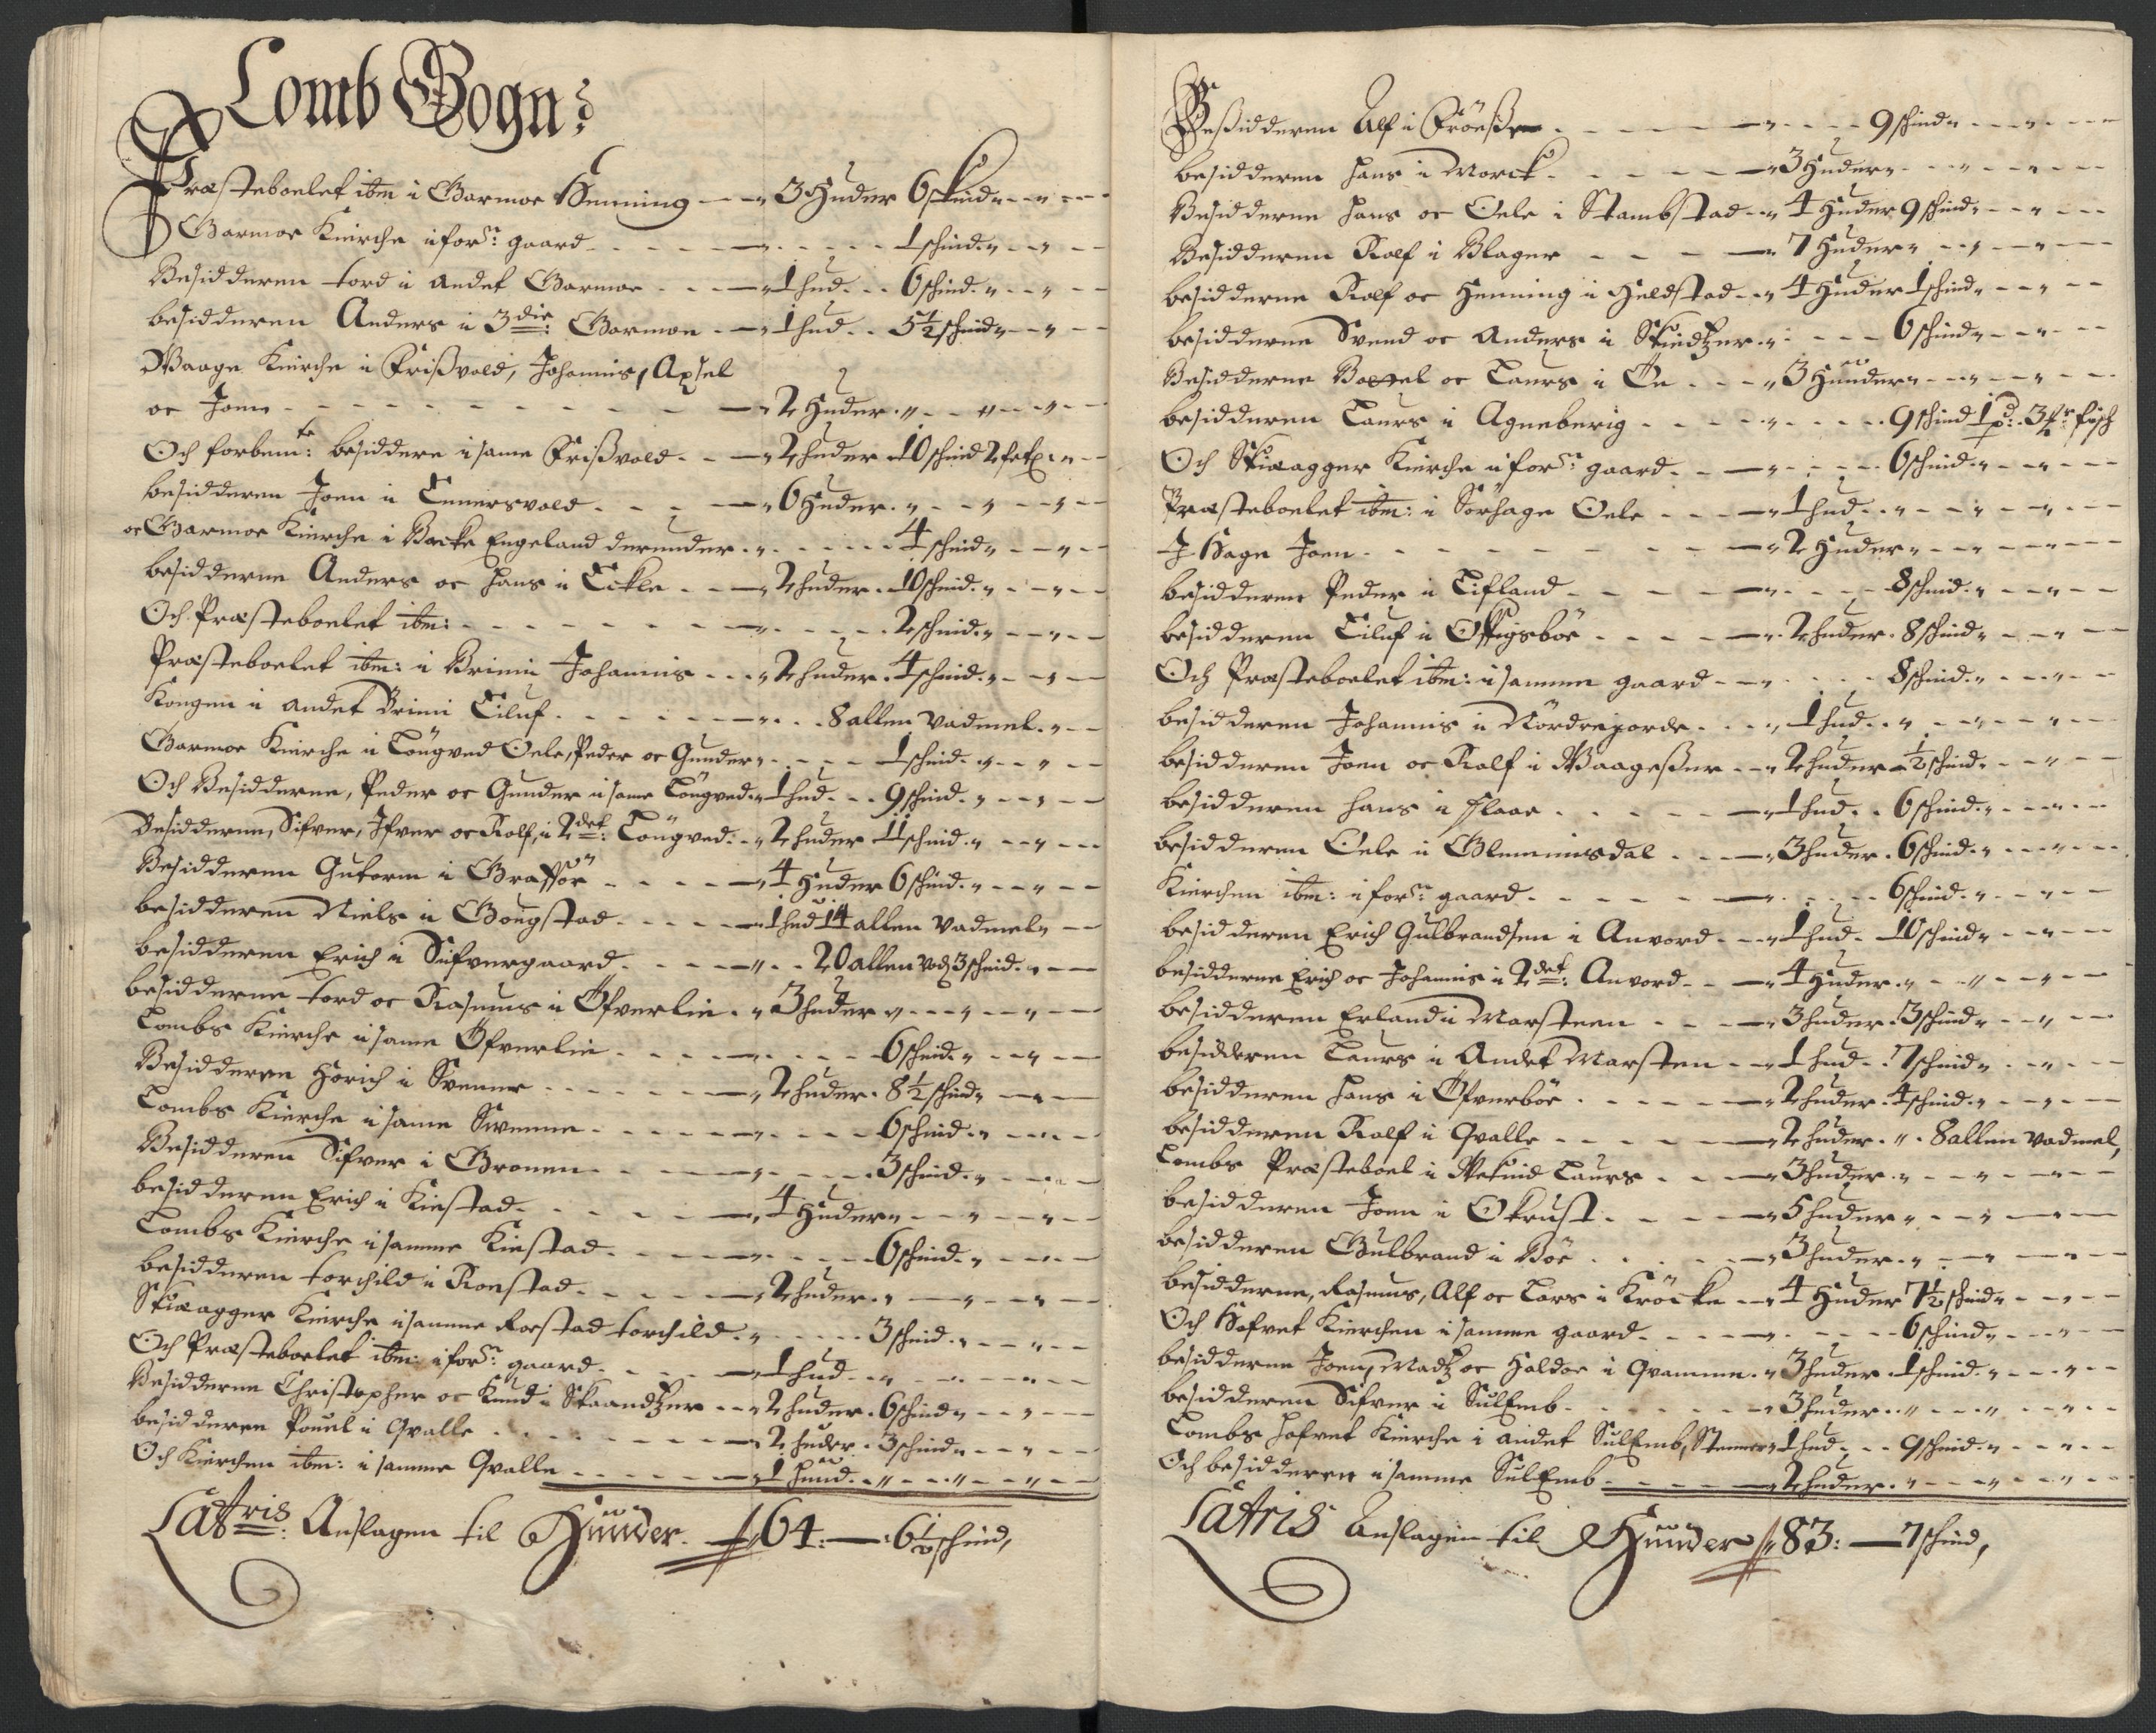 Lomb Sogn:
Præsteboelet ibm i Garmoe Henning — 3 Huder 6 skind
Garmoe Kierche i forne: gaard — 1 schind
Besidderen tord i andet Garmoe — 1 hud 6 schind
besidderen Anders i 3die: Garmoe — 1 hud 5½ schind
Waage Kierche i Frißvold, Johannis, Axsel
oc Joen — 2 Huder
Och forbemte: besiddere i same Frißvold — 2 huder 10 schind
besidderen Joen i — 6 Huder
oc Garmoe Kierche i Backe Engeland derunder — 4 schind
besidderne Anders oc Hans i — 2 huder 10 schind
Och Præsteboelet ibm: — 2 schind
Præsteboelet ibm: i Brimi Johannis — 2 huder 4 schind
Kongen i andet Brimi Eiluf — 8 allen vadmel
Garmoe Kierche i Löugved Oele, Peder oc Gunder — 1 schind
Och Besidderne, Peder oc Gunder i same Löugved — 1 hud 9 schind
Besidderne, Sifver, Ifver oc Rolf, i 2det: Löugved — 2 huder 11 schind
Besidderen Gutorm i Grafför — 4 Huder 6 schind
besidderen Niels i Gougstad — 1 hud 14 allen vadmel
besidderen Erich i Sifvergaard — 20 allen vod: 3 schind
besidderne tord oc Rasmus i Öfverlie — 3 huder
Lombs Kierche i same Öfverlie — 6 schind
Besidderen Horich i Svenne — 2 huder 8½ schind
Lombs Kierche i same Svenne — 6 schind
Besidderen Sifver i Gronen — 3 schind
besidderen Erich i Kiestad — 4 Huder
Lombs Kierche i samme Kiestad — 6 schind
besidderen torchild i Roestad — 2 huder
Skieagger Kierche i samme Roestad torchild — 3 schind
Och Præsteboelet ibm: i forne: gaard — 1 hud
Besidderne Christopher oc Knud i Skaandzer — 2 huder 6 schind
besidderen Pouel i Qvalle — 2 huder 3 schind
Och Kierchen ibm: i samme Qvalle — 1 huud
Latris: Anslagen til Huuder 64: — 6½ schind,
Beßidderen Alf i — 9 schind
besidderen Hans i Morck — 3 Huder
Besidderne Hans oc Oele i Stambstad — 4 Huder 9 schind
Besidderen Rolf i Blager — 7 Huder
besidderne Rolf oc Henning i Heldstad — 4 Huder 1 schind
besidderne Svend oc Anders i — 6 schind
Besidderne oc Laurs i — 3 Huuder
besidderen Laurs i Agneberig — 9 schind 1 pd: 3 fisch
Och Skieagger Kierche i forne: gaard — 6 schind
Præsteboelet ibm: i Sörhage Oele — 1 hud
I Hage Joen — 2 Huder
besidderen Peder i Lifland — 8 schind
besidderen Eiluf i Offigsböe — 2 huder 8 schind
Och Præsteboelet ibm: i samme gaard — 8 schind
besidderen Johannis i Nördregorde — 1 hud
besidderen Joen oc Rolf i Waageßer — 2 huder ½ schind
besidderen Hans i flaae — 1 hud 6 schind
besidderen Oele i Glemmisdal — 3 huder 6 schind
Kierchen ibm: i forne: gaard — 6 schind
besidderen Erich Gulbrandsen i Anvord — 1 hud 10 schind
besidderne Erich oc Johannis i 2det: Anvord — 4 Huder
besidderen Erland i Marsteen — 3 huder 3 schind
besidderen Laurs i Andet Marsten — 1 hud 7 schind
besidderen Hans i Öfverböe — 2 huder 4 schind
besidderen Rolf i Qvalle — 2 huder 8 allen vadmel,
Lombs Præsteboel i Laurs — 3 huder
besidderen Joen i Okrust — 5 huder
besidderen Gulbrand i Böe — 3 huder
besidderne, Rasmus, Alf oc Lars i Kröcke — 4 Huder 7½ schind
Och Hofvet Kierchen i samme gaard — 6 schind
besidderne Joen, Madtz oc Haldoe i Qvamme — 3 huder 1 schind
besidderen Sifver i Sulemb — 3 huder
Lombs Hofvet Kierche i andet Sulemb, — 1 hud 9 schind
Och besidderen i samme Sulemb — 2 huder
Latris Anslagen til Huuder 83: — 7 schind,